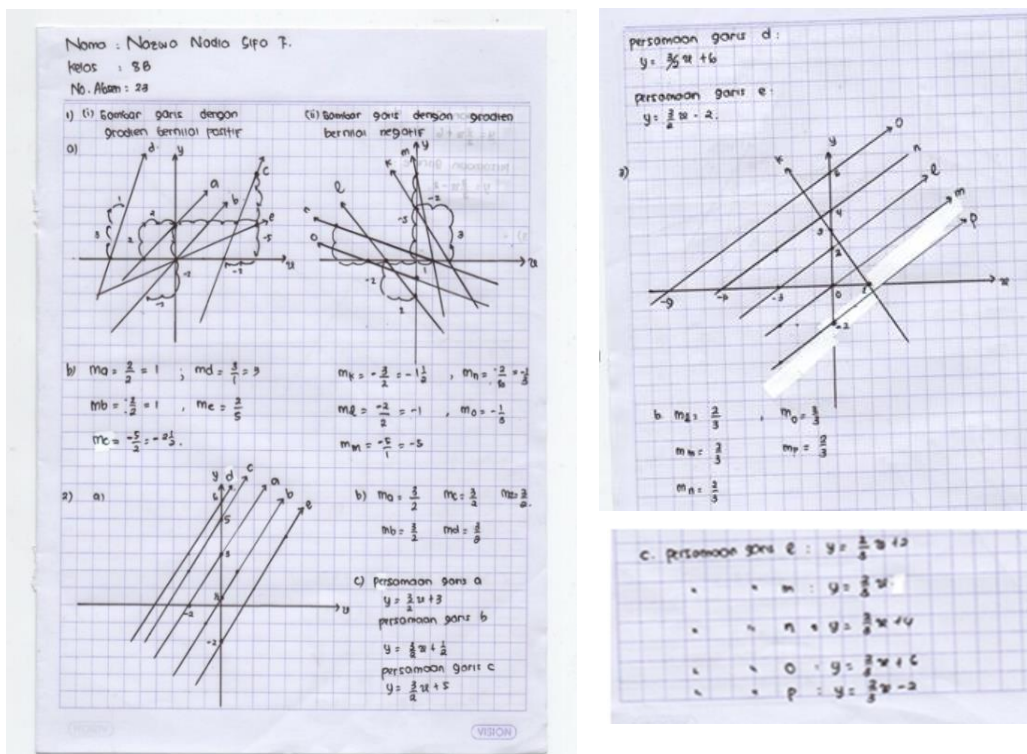 Nama : Nazwa Nadia Sifa F.
Kelas : 8B
No. Absen : 23
1) (i) Gambar garis dengan gradien bernilai positif
(ii) Gambar garis dengan gradien bernilai negatif
a)
d y a b c e
2 3 1 2 -2 -2 -5 -2
x
y m k l n o
-2 -5 3 1 -2
x
b) ma = 2/2 = 1 ; md = 3/1 = 3
mb = -2/-2 = 1 , me = 2/5
mc = -5/2 = -2 1/2 .
mk = -3/2 = -1 1/2 , mn = -2/6 = -1/3
ml = -2/2 = -1 , mo = -1/3
mm = -5/1 = -5
2) a)
y d c a b e
6 5 3 -2 -2
x
b) ma = 3/2 mc = 3/2 me = 3/2
mb = 3/2 md = 3/2
c) Persamaan garis a
y = 3/2 x + 3
persamaan garis b
y = 3/2 x + 1/2
persamaan garis c
y = 3/2 x + 5
VISION
persamaan garis d :
y = 3/2 x + 6
persamaan garis e :
y = 3/2 x - 2.
3)
k y o n l m p
6 4 3 2
-9 -6 -3 0
-2
x
b. ml = 2/3 , mo = 2/3
mm = 2/3 mp = 2/3
mn = 2/3
c. persamaan garis l : y = 2/3 x + 2
" " m : y = 2/3 x.
" " n : y = 2/3 x + 4
" " o : y = 2/3 x + 6
" " p : y = 2/3 x - 2